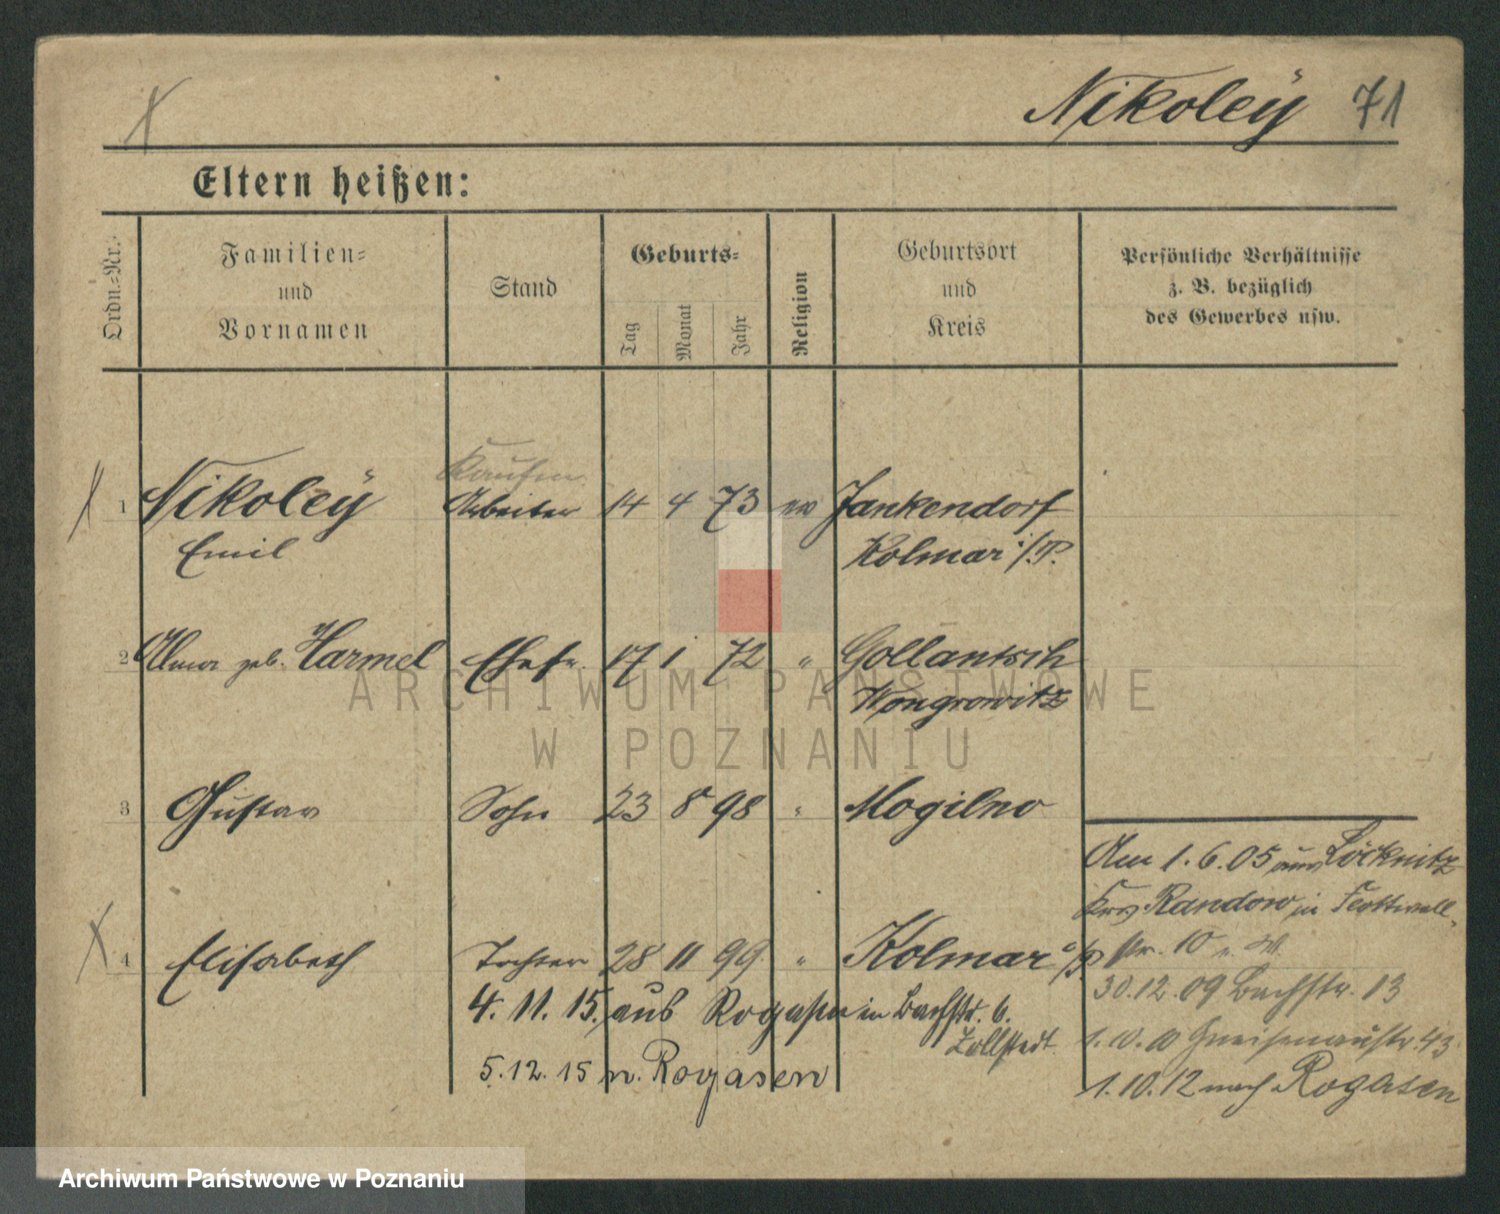 Nikoleÿ 71
Eltern heißen:
Ordn.-Nr.
Familien-
und
Vornamen
Stand
Geburts-
Tag
Monat
Jahr
Religion
Geburtsort
und
Kreis
Persönliche Verhältnisse
z. B. bezüglich
des Gewerbes usw.
Kaufm
1 Nikoleÿ Arbeiter 14 4 73 ev Jankendorf
Emil Kolmar i/P.
2 Alma geb. Harmel Ehefr. 17 1 72 " Gollantsch
Wongrowitz
3 Gustav Sohn 23 8 98 " Mogilno
Am 1.6.05 aus Löcknitz
Krs Randow in
4 Elisabeth Tochter 28 11 99 " Kolmar i/P
str. 10
4.11.15. aus Rogasen in Bachstr. 6.
30.12.09 Bachstr. 13
1.10.10 Gneisenaustr. 43
5.12.15 n. Rogasen
1.10.12 nach Rogasen
ARCHIWUM PAŃSTWOWE
W POZNANIU
Archiwum Państwowe w Poznaniu